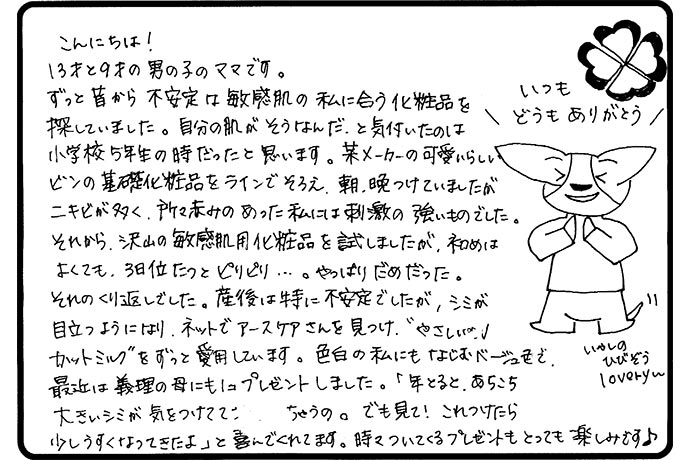 こんにちは!
13才と9才の男の子のママです。
ずっと昔から不安定な敏感肌の私に合う化粧品を
探していました。自分の肌がそうなんだ、と気付いたのは
小学校5年生の時だったと思います。某メーカーの可愛いらしい
ビンの基礎化粧品をラインでそろえ、朝、晩つけていましたが
ニキビが多く、所々赤みのあった私には刺激の強いものでした。
それから、沢山の敏感肌用化粧品を試しましたが、初めは
よくても、3日位たつとピリピリ…。やっぱりだめだった。
それのくり返しでした。産後は特に不安定でしたが、シミが
目立つようになり、ネットでアースケアさんを見つけ、"やさしいの
カットミルク"をずっと愛用しています。色白の私にもなじむベージュ色で、
最近は義理の母にもプレゼントしました。「年とると、あちこち
大きいシミが気をつけてて ちゃうの。でも見て!これつけたら
少しうすくなってきたよ」と喜んでくれてます。時々ついてくるプレゼントもとっても楽しみです♪
いつも
どうもありがとう
いやしの
ひびぞう